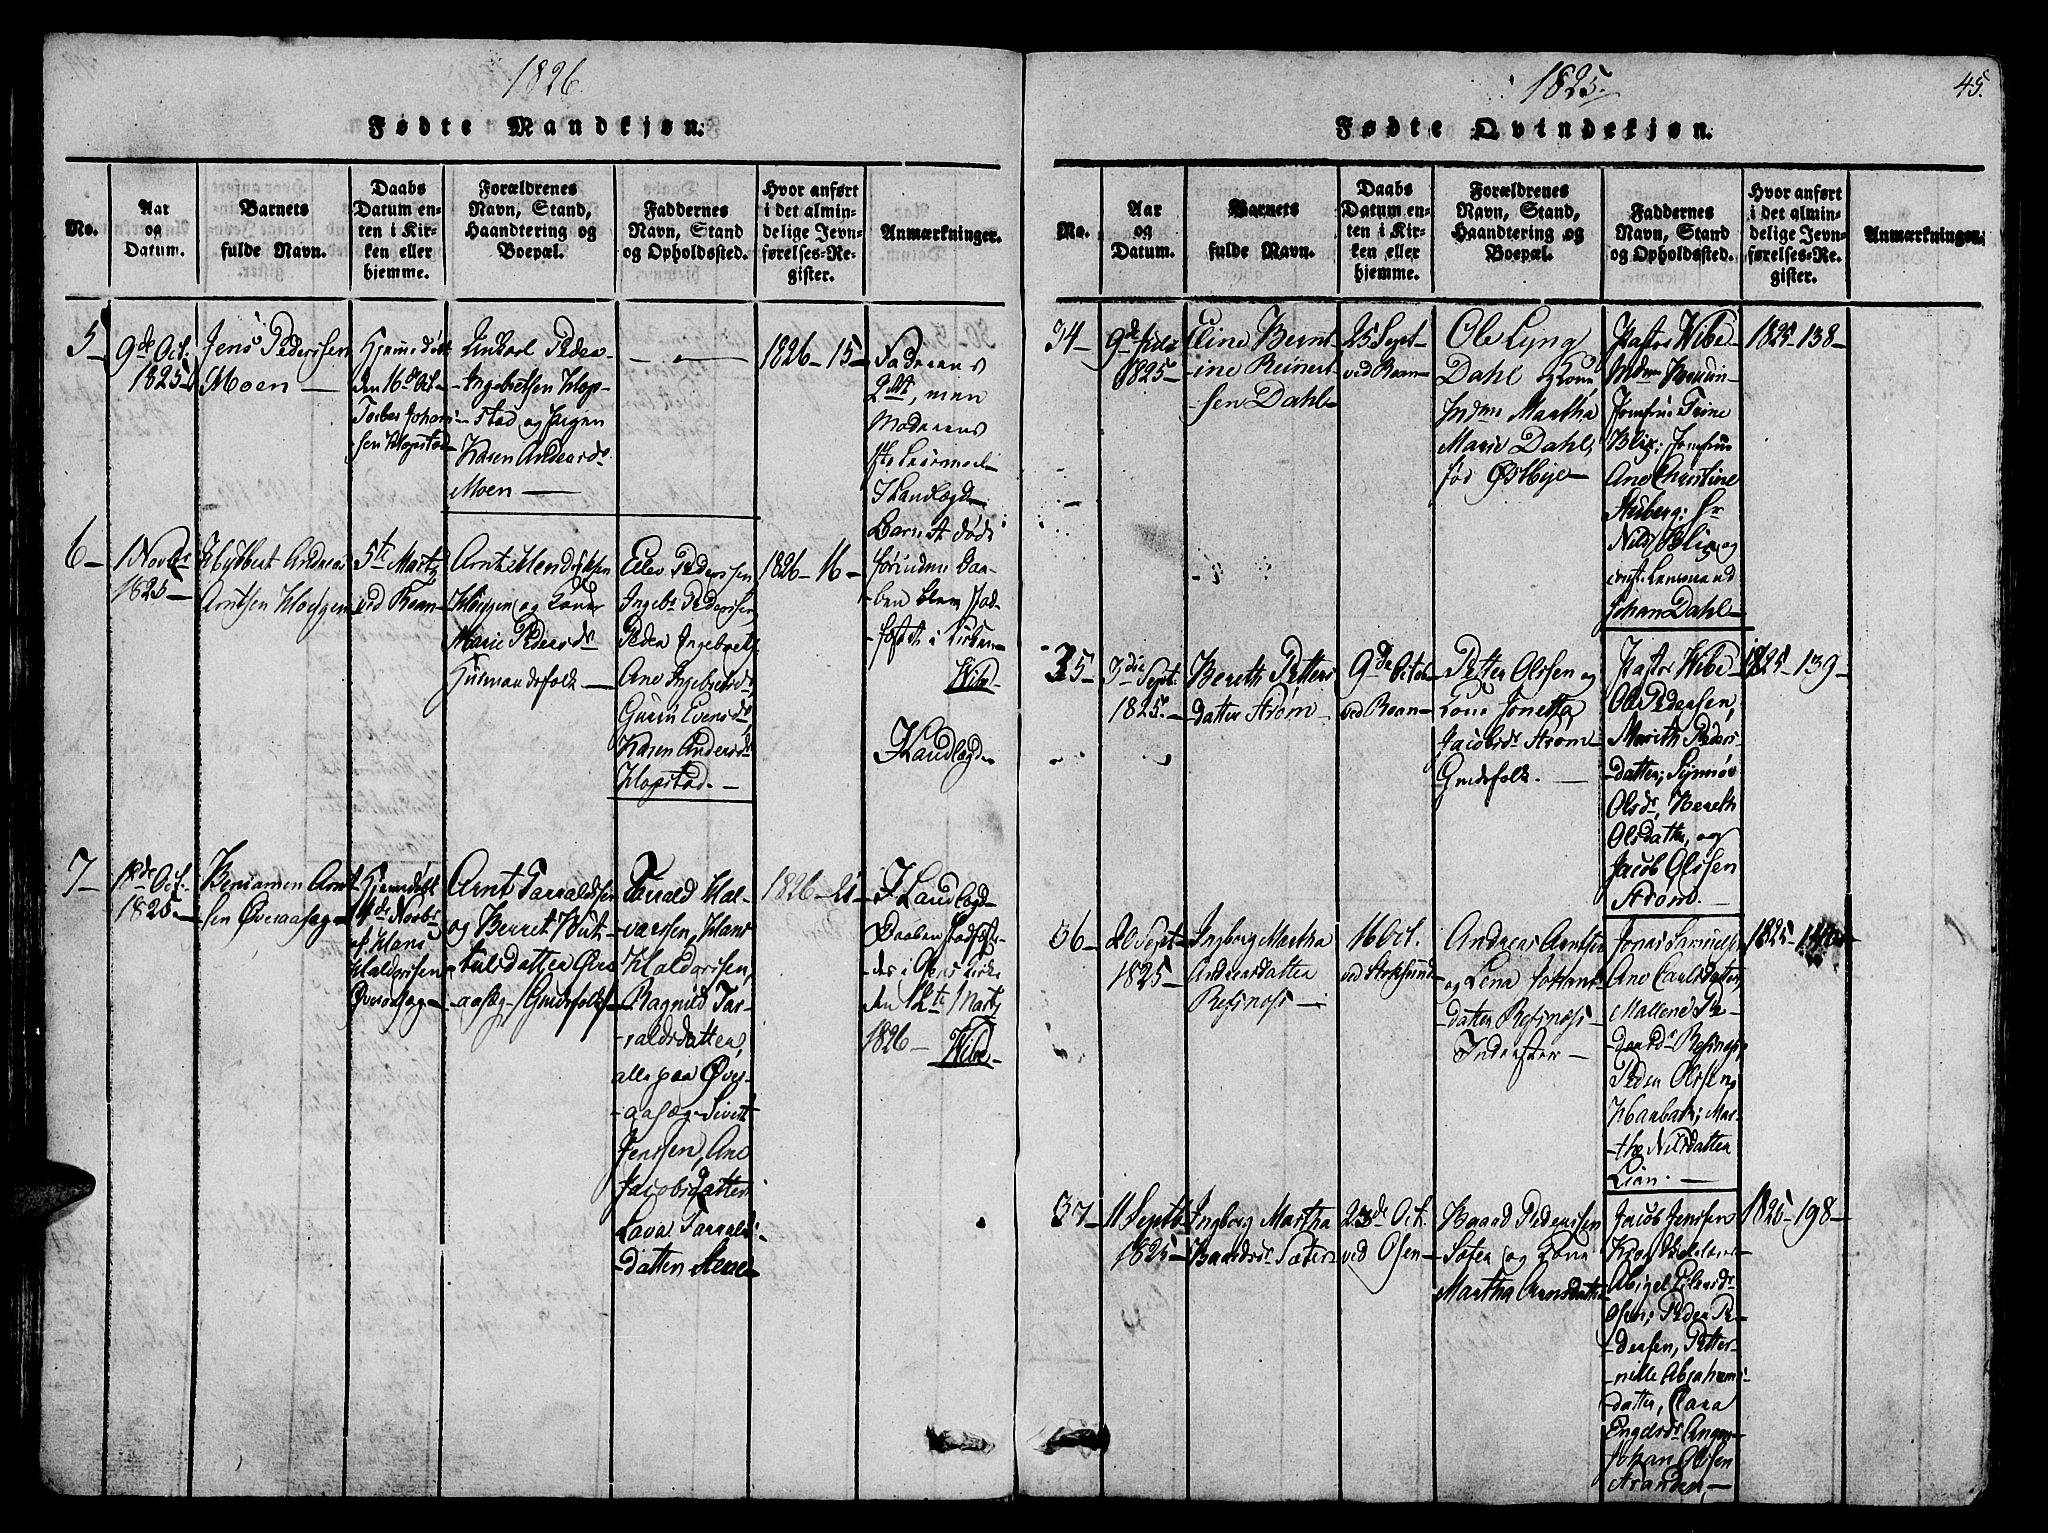 1826
Fødte Mandkjøn.
No.
Aar
og
Datum.
Barnets
fulde Navn.
Daabs
Datum en-
ten i Kir-
ken eller
hjemme.
Forældrenes
Navn, Stand,
Haandtering og
Boepæl.
Faddernes
Navn, Stand
og Opholdssted.
Hvor anført
i det almin-
delige Jevn-
førelses-Re-
gister.
Anmærkninger.
5
9de Oct.
1825
Jens Pederssen
Moen
Hjemmedøbt
den 16de Oct
Johan-
sen Hopstad
Peder
Ingebretsen Hop-
stad og Pigen
Karen Andersdr
Moen
1826 - 15
Faderens
2det, men
Moderens
1ste Leiermaal
I Landlægd
Barnet døde
førinden Daa-
ben blev stad-
fæstet i Kirken
Wibe
6
1 Novbr
1825
Andreas
Arntsen Hopen
5te Martz
ved Roan
Arnt Hendrichsen
og Kone
Marie Pedersdr
Huusmandsfolk
Eilev Pederssen
Ingebr Pederssen
Peder Ingebretz
Ane Ingebretsdr
Guru Evensdr
Karen Andersdr
Hopstad
1826 - 16
I Landlægd
7
18de Oct.
1825
Beniamin Arnt-
sen Øveraasæg
Hjemdøbt
4de Novbr
af Hans
Haldorsen
Øveraasæg
Arnt Tarraldsen
og Berret
datter Øver-
aasæg Gaardfolk
Tarald Hal-
varssen, Hans
Haldorssen,
Ragnild Tar-
raldsdatter,
alle paa Øver-
aasæg Sivert
Jenssen, Ane
Jacobsdatter
Lava Tarralds-
datter Steene
1826 - 21
I Landlægd
Daaben stadfæst-
des i Osens Kirke
den 12te Martz
1826
Wibe
1825.
45.
Fødte Qvindekjøn.
No.
Aar
og
Datum.
Barnets
fulde Navn.
Daabs
Datum en-
ten i Kir-
ken eller
hjemme.
Forældrenes
Navn, Stand,
Haandtering og
Boepæl.
Faddernes
Navn, Stand
og Opholdssted.
Hvor anført
i det almin-
delige Jevn-
førelses-Re-
gister.
Anmærkninger.
34
9de
1825
Eline Bernt-
ine Reinert-
sen Dahl
25 Sept
ved Roan
Ole Lyng
Dahl og Kone
Mdm Martha
Marie Dahl,
fød Østbye
Pastor Wibe
Mdm
Jomfrue Trine
Blix; Jomfrue
Ane Christine
Stuberg; Hr
Nils Blix og
Lensmand
Johan Dahl
1825 - 138
35
3die Sept
1825
Bereth Petters
datter Strøm
9de Octob
ved Roan
Petter Olssen og
Kone Jonetta
Jacobsdr Strøm
Gaardfolk.
Pastor Wibe
Ole Pederssen,
Marith Peders-
datter; Synnøv
Olsdr, Bereth
Olsdatter, og
Jacob Olssen
Strøm.
1825 - 139
36
20 Sept
1825
Ingborg Martha
Andreasdatter
Refsnæss
16 Oct.
ved Stoksund
Andreas Arntsen
og Lena Johans-
datter Refsnæss
Inderster
Jonas Samuels
Ane Carlsdatter,
Mallene Pe-
dersdr Refsnæss,
Peder Olssen,
Harbak; Mar-
tha Nilsdatter
Lian.
1825 - 140
37
11 Septb
1825
Ingborg Martha
Baardsdr Sæter
23de Oct.
ved Osen
Baard Pederssen
Sæter og Kone
Martha Arntsdatter
Jacob Jenssen
Abigel Eilertsdr
Osen; Peder Pe-
dersen, Petter-
nille Abrahams-
datter, Clara
Engelsdr
Johan Olssen
Stranden,
1825 - 198